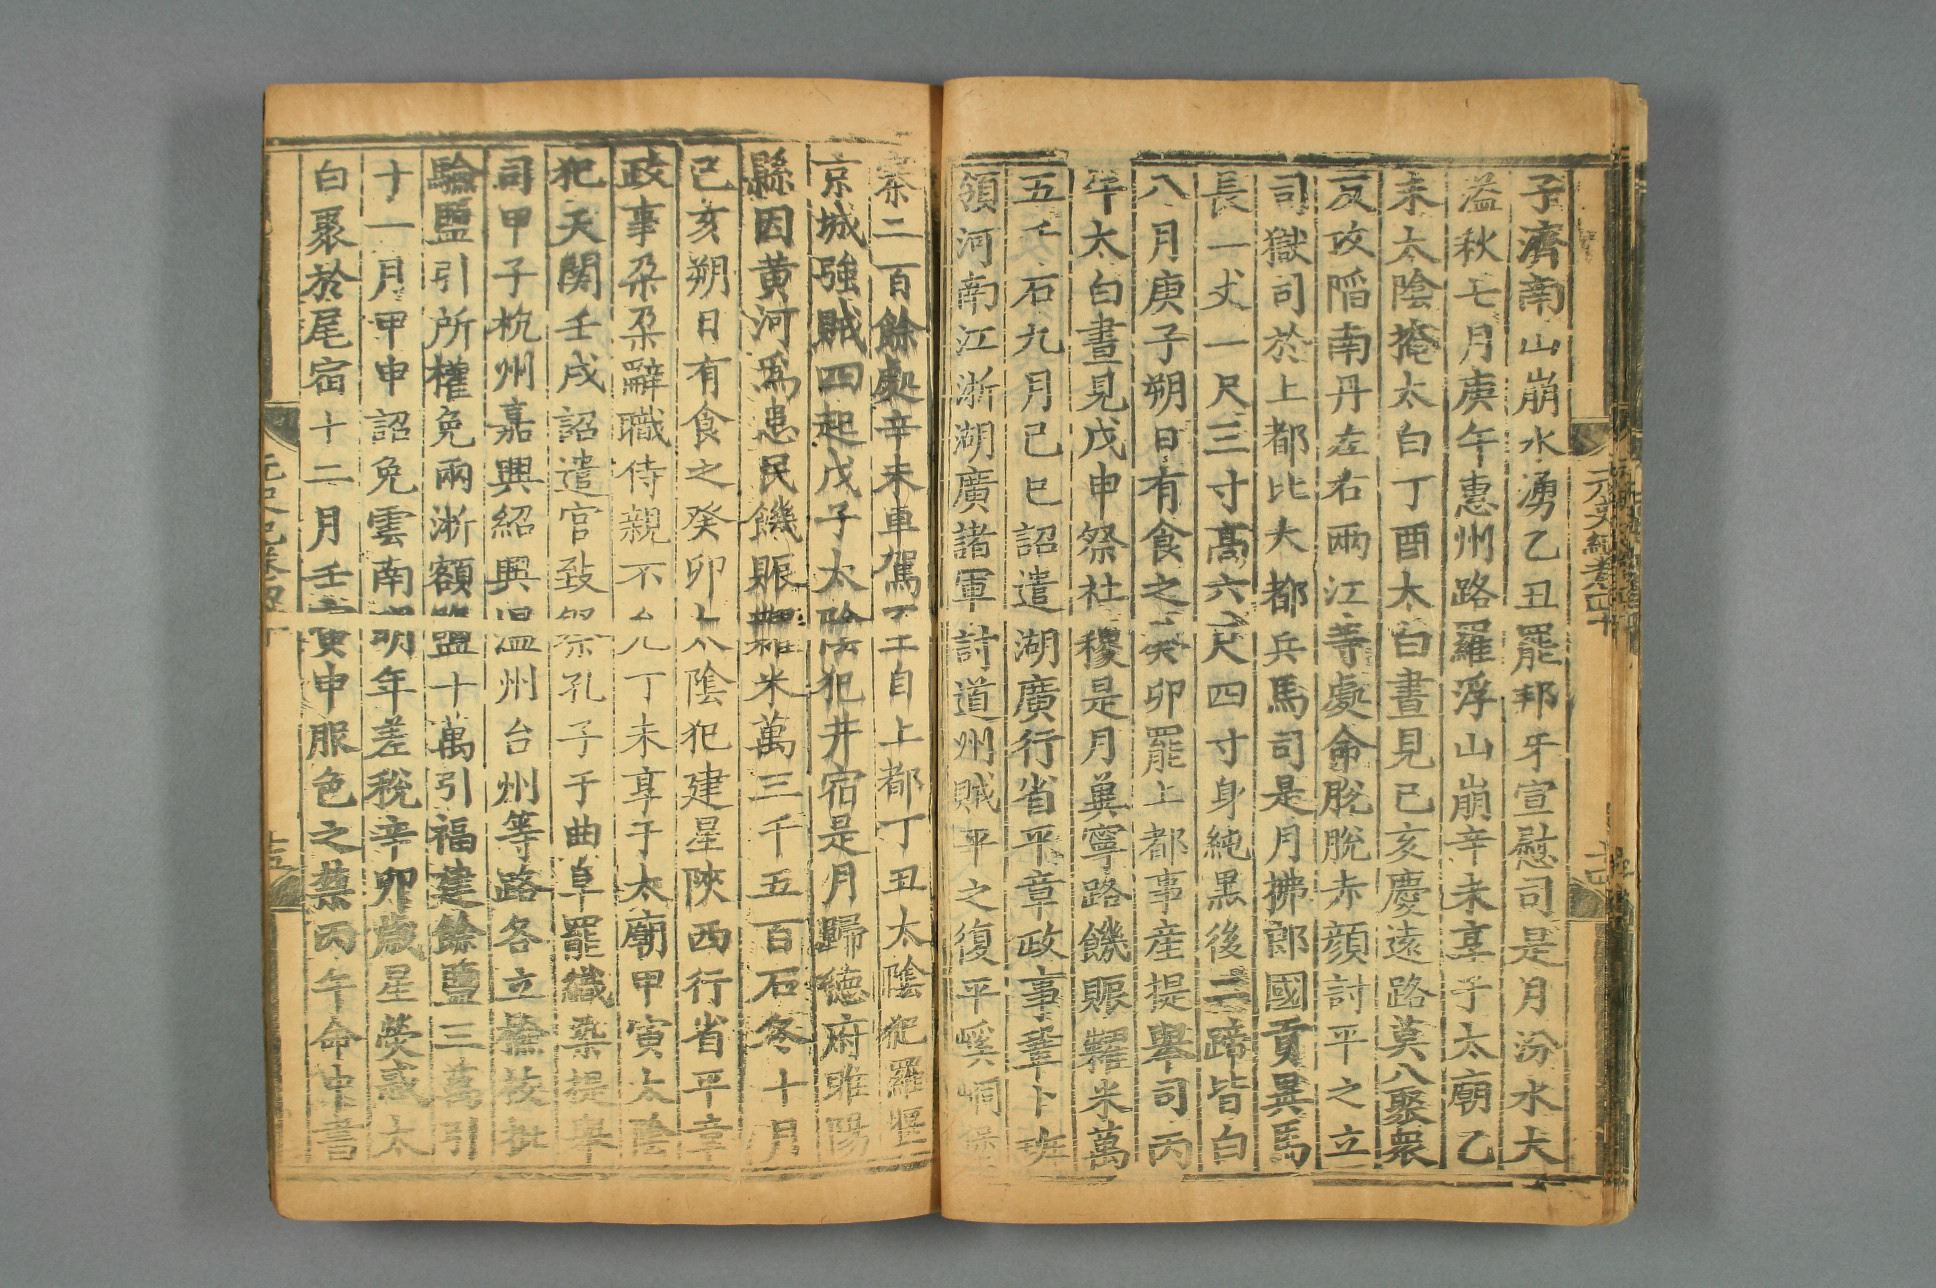 子濟南山崩水湧乙丑罷邦牙宣慰司是月汾水大
溢秋七月庚午惠州路羅浮山崩辛未享于太廟乙
未太陰掩太白丁酉太白晝見己亥慶遠路莫八聚衆
反攻陷南丹左右兩江等處命脫脫赤顔討平之立
司獄司於上都比大都兵馬司是月拂郎國貢異馬
長一丈一尺三寸高六尺四寸身純黑後二蹄皆白
八月庚子朔日有食之癸卯罷上都事產提舉司丙
午太白晝見戊申祭社稷是月冀寧路饑賑糶米萬
五千石九月己巳詔遣湖廣行省平章政事鞏卜班
領河南江浙湖廣諸軍討道州賊平之復平溪峒堡
寨二百餘處辛未車駕至自上都丁丑太陰犯羅堰
京城強賊四起戊子太陰犯井宿是月歸德府睢陽
縣因黄河爲患民饑賑糶米萬三千五百石冬十月
己亥朔日有食之癸卯太陰犯建星陝西行省平章
政事朶朶辭職侍親不允丁未享于太廟甲寅太陰
犯天關壬戌詔遣官致祭孔子于曲阜罷織染提舉
司甲子杭州嘉興紹興温州台州等路各立撿校批
驗鹽引所權免兩浙額鹽十萬引福建餘鹽三萬引
十一月甲申詔免雲南明年差税辛卯歲星熒惑太
白聚於尾宿十二月壬寅申服色之禁丙午命中書
元史紀卷四十
十五
元史紀卷四十
十四